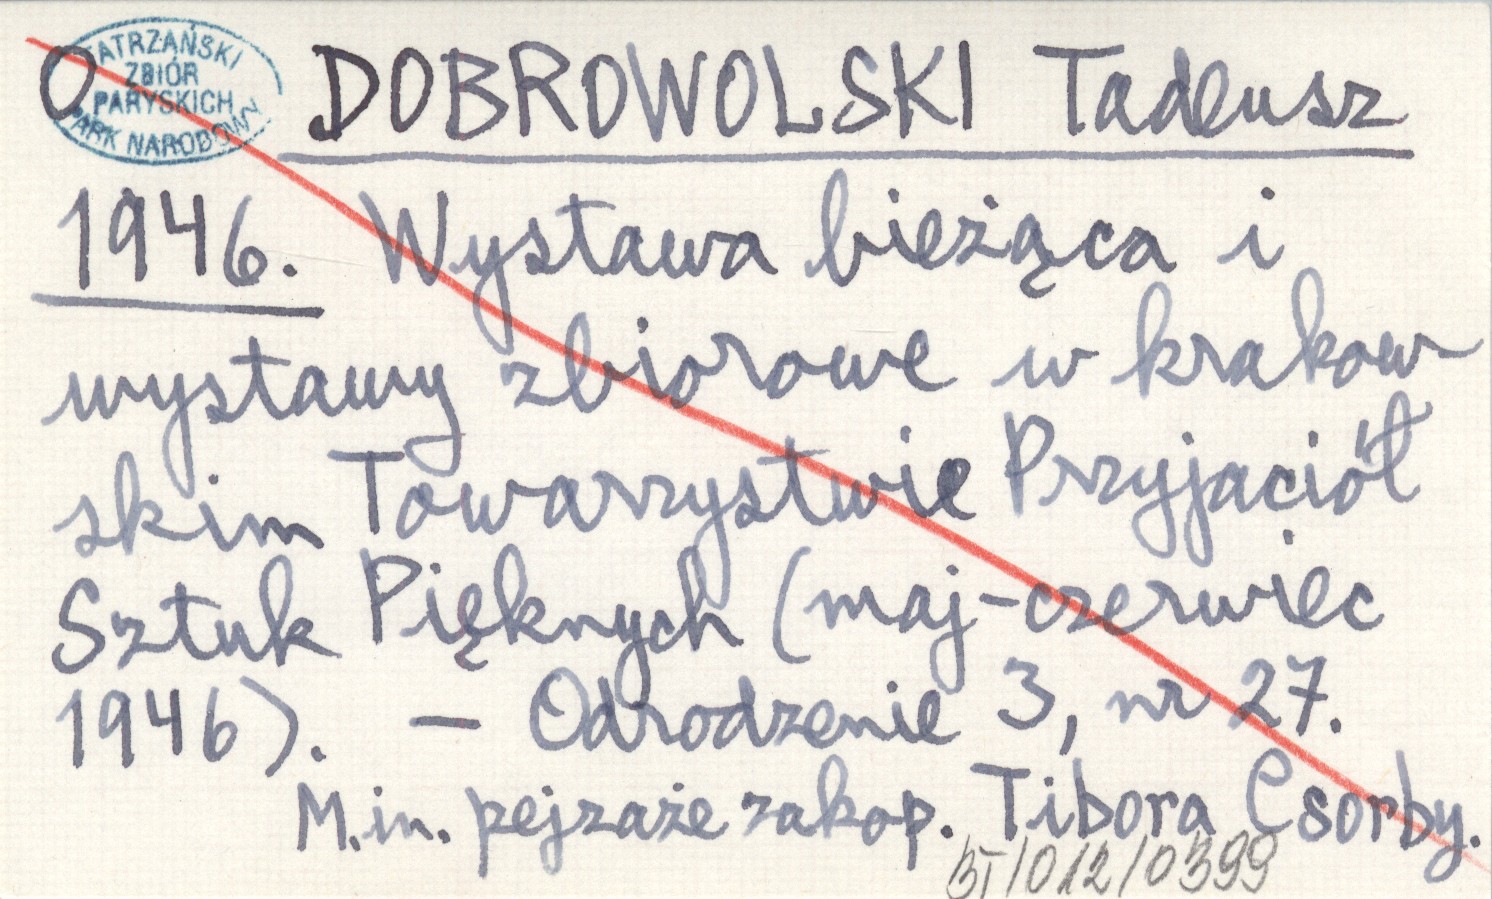 O
TATRZAŃSKI
ZBIÓR
PARYSKICH
PARK NARODOWY
DOBROWOLSKI Tadeusz
1946. Wystawa bieżąca i
wystawy zbiorowe w krakow
skim Towarzystwie Przyjaciół
Sztuk Pięknych (maj-czerwiec
1946). – Odrodzenie 3, nr 27.
M.in. pejzaże zakop. Tibora Csorby.
BT/012/0399